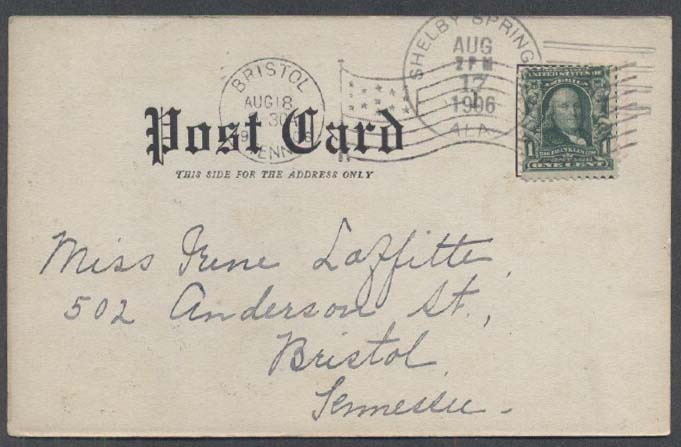 SHELBY SPRING
AUG
2 PM
17
1906
ALA.
BRISTOL
AUG 18
30A
TENN.
UNITED STATES OF
AMERICA
FRANKLIN
1 1
ONE CENT
Post Card
THIS SIDE FOR THE ADDRESS ONLY
Miss Irene Laffitte
502 Anderson St.,
Bristol
Tennessee.